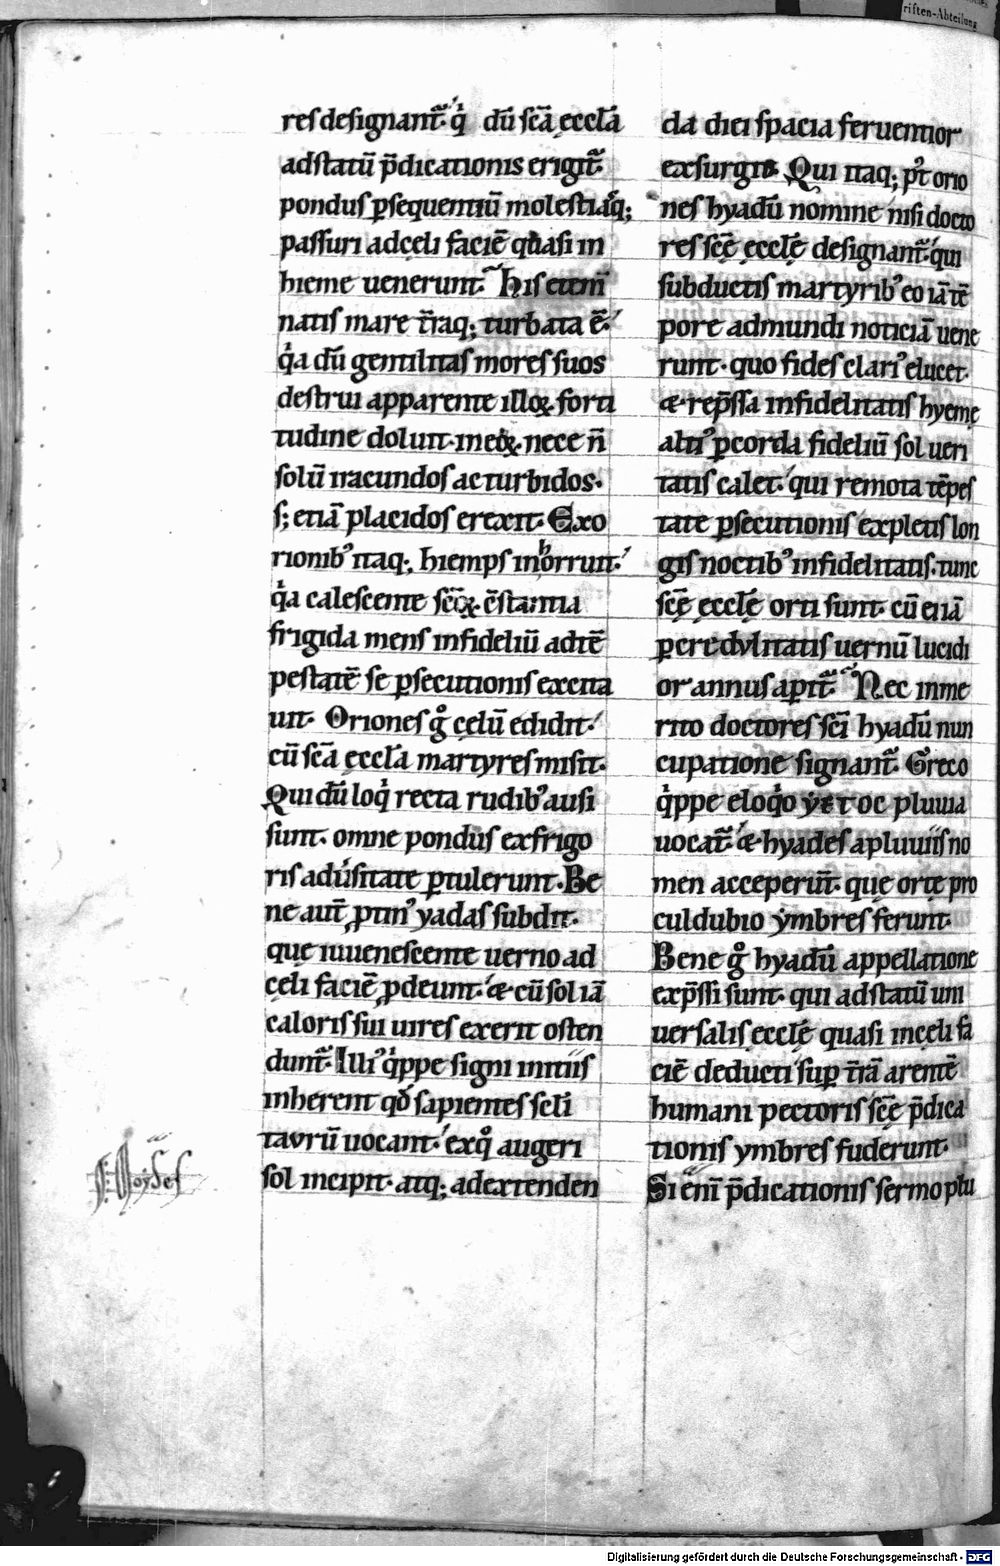 riften-Abteilung
reſ deſignant᷑. q̇ dū ſcā ęccl̄a
ad ſtatū p̄dicationis erigit᷑.
ponduſ ꝑſequentiū moleſtiaꝗ;
paſſuri ad cęli faciē quaſi in
hieme uenerunt. Hiſ etenī
natiſ mare t̄raq; turbata ē.
q̇a dū gentilitaſ moreſ ſuoſ
deſtrui apparente illoꝝ forti
tudine doluit. in eoꝝ nece n̄
ſolū iracundoſ ac turbidoſ.
ſ; etiā placidoſ erexit. Exo
rionibꝰ itaq; hiempſ inhorruit.
q̇a caleſcente ſc̄oꝝ c̄ſtantia
frigida menſ infideliū ad tē
peſtatē ſe ꝑſecutioniſ excita
uit. Orioneſ g̊ cęlū edidit.
cū ſcā ęccl̄a martyreſ miſit.
Qui dū loq̇ recta rudibꝰ auſi
ſunt. omne ponduſ ex frigo
riſ aduſitate ꝑtulerunt. Be
ne aut̄ ꝓtinꝰ yadaſ ſubdit.
que iuueneſcente uerno ad
cęli faciē ꝓdeunt. & cū ſol iā
caloriſ ſui uireſ exerit oſten
dunt᷑. Illiꝰ q̇ppe ſigni initiiſ
inherent qđ ſapienteſ ſcl̄i
taurū uocant. ex q̊ augeri
ſol incipit. atq; ad extenden
da diei ſpacia feruentior
exſurgit. Qui itaq; pꝰt orio
neſ hyadū nomine niſi docto
reſ ſcę̄ ęccl̄ę deſignant᷑. qui
ſubductiſ martyribꝰ eo iā tē
pore ad mundi noticiā uene
runt. quo fideſ clariꝰ elucet.
& rep̄ſſa infidelitatiſ hyeme
altiꝰ ꝑ corda fideliū ſol ueri
tatiſ calet. qui remota tēpeſ
tate ꝑſecutioniſ expletiſ lon
giſ noctibꝰ infidelitatiſ. tunc
ſcę̄ ęccl̄ę orti ſunt. cū ei iā
ꝑ credulitatiſ uernū lucidi
or annuſ apit᷑. Nec inme
rito doctoreſ ſcī hyadū nun
cupatione ſignant᷑. Greco
q̇ppe eloq̇o yetoc pluuia
uocat᷑. & hyadeſ a pluuiiſ no
men acceperūt. quę ortę pro
cul dubio ymbreſ ferunt.
Bene g̊ hyadū appellatione
exp̄ſſi ſunt. qui ad ſtatū uni
uerſaliſ eccl̄ę quaſi in cęli fa
ciē deducti ſuꝑ t̄rā arentē
humani pectoriſ ſcę̄ p̄dica
tioniſ ymbreſ fuderunt.
Si enī p̄dicationiſ ſermo plu
Digitalisierung gefördert durch die Deutsche Forschungsgemeinschaft - DFG